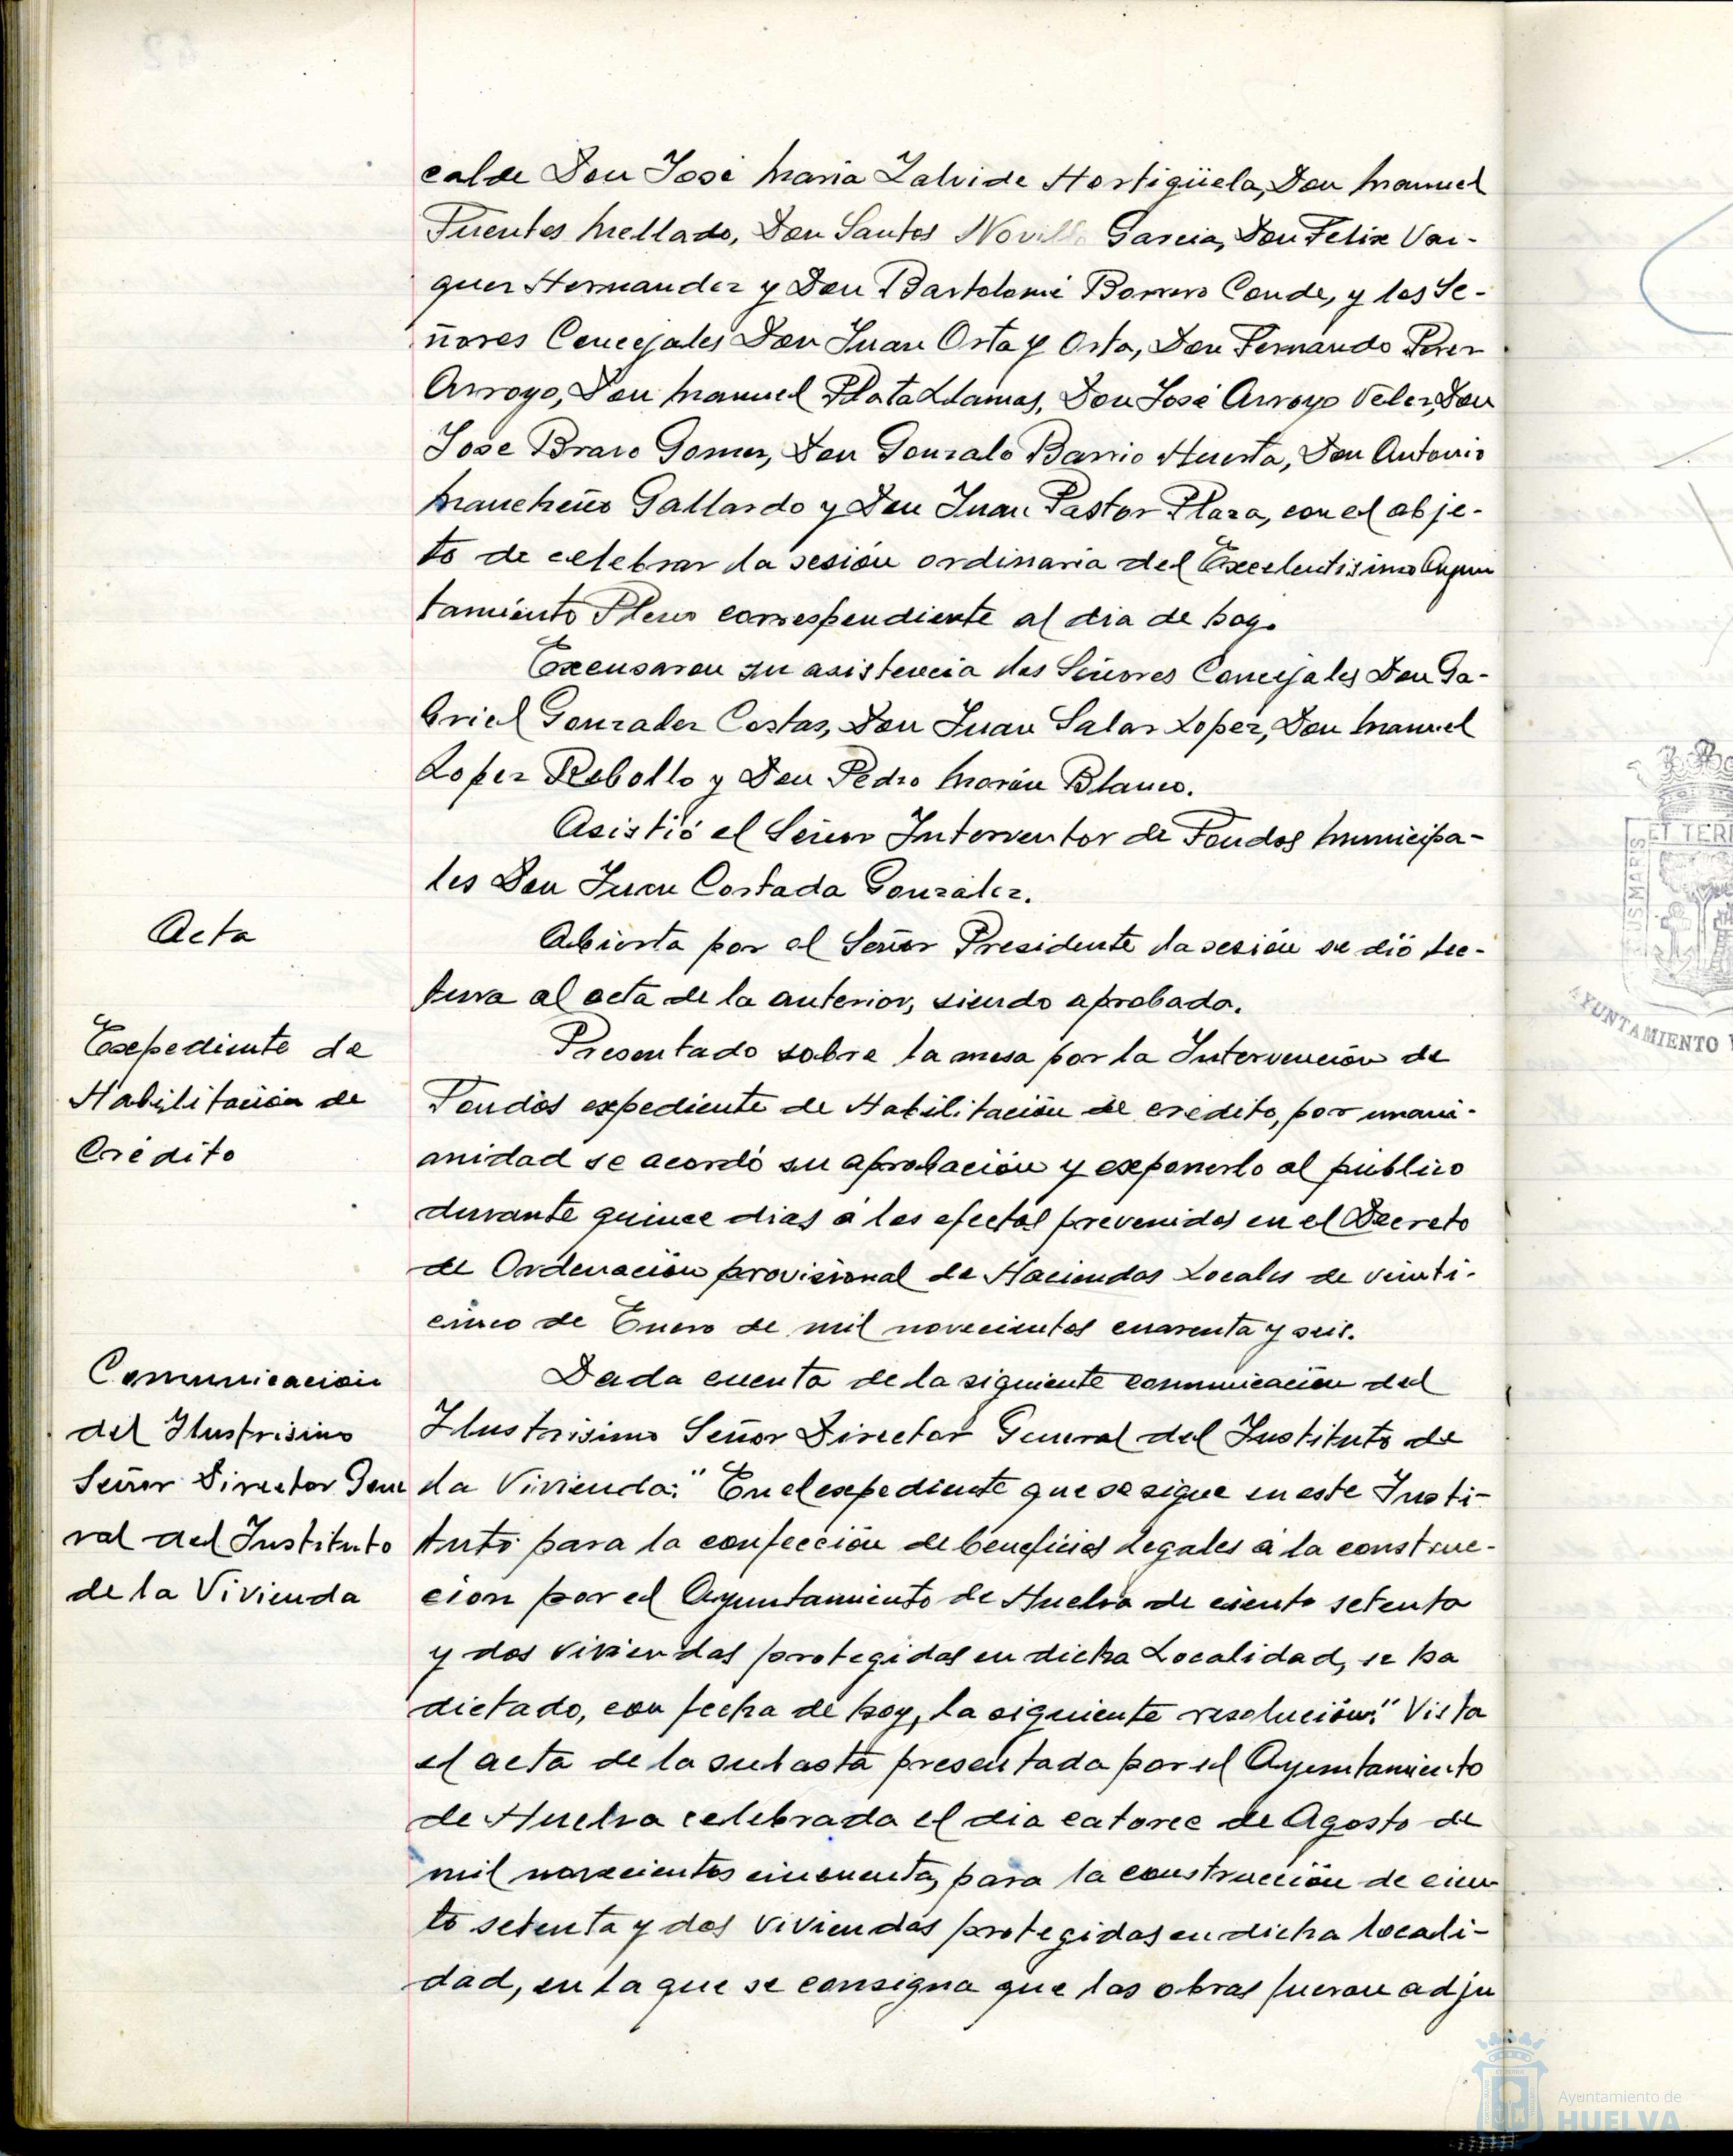 calde Don José Maria Zalvide Hortigüela, Don Manuel
Fuentes Mellado, Don Santos Novillo Garcia, Don Felix Vaz-
quez Hernandez y Don Bartolomé Borrero Conde, y los Se-
ñores Concejales Don Juan Orta y Orta, Don Fernando Perez
Arroyo, Don Manuel Plata Llamas, Don José Arroyo Velez, Don
Jose Bravo Gomez, Don Gonzalo Barrio Huerta, Don Antonio
Mancheño Gallardo y Don Juan Pastor Plaza, con el obje-
to de celebrar la sesión ordinaria del Excelentisimo Ayun
tamiento Pleno correspondiente al dia de hoy.
Excusaron su asistencia los Señores Concejales Don Ga-
briel Gonzalez Costas, Don Juan Salas Lopez, Don Manuel
Lopez Rebollo y Don Pedro Morón Blanco.
Asistió el Señor Interventor de Fondos Municipa-
les Don Juan Costada González.
Acta
Abierta por el Señor Presidente la sesión se dió lec-
tura al acta de la anterior, siendo aprobada.
Expediente de
Habilitación de
Crédito
Presentado sobre la mesa por la Intervención de
Fondos expediente de Habilitación de crédito, por unani-
midad se acordó su aprobación y exponerlo al público
durante quince dias a los efectos prevenidos en el Decreto
de Ordenación provisional de Haciendas Locales de veinti-
cinco de Enero de mil novecientos cuarenta y seis.
Comunicación
del Ilustrisimo
Señor Director Gene
ral del Instituto
de la Vivienda
Dada cuenta de la siguiente comunicación del
Ilustrisimo Señor Director General del Instituto de
la Vivienda: " En el expediente que se sigue en este Insti-
tuto para la confección de beneficios legales a la construc-
cion por el Ayuntamiento de Huelva de ciento setenta
y dos viviendas protegidas en dicha Localidad, se ha
dictado, con fecha de hoy, la siguiente resolución:" Vista
el acta de la subasta presentada por el Ayuntamiento
de Huelva celebrada el dia catorce de Agosto de
mil novecientos cincuenta, para la construcción de cien-
to setenta y dos viviendas protegidas en dicha locali-
dad, en la que se consigna que las obras fueron adju
ET TER
US MARIS
AYUNTAMIENTO
Ayuntamiento de
HUELVA